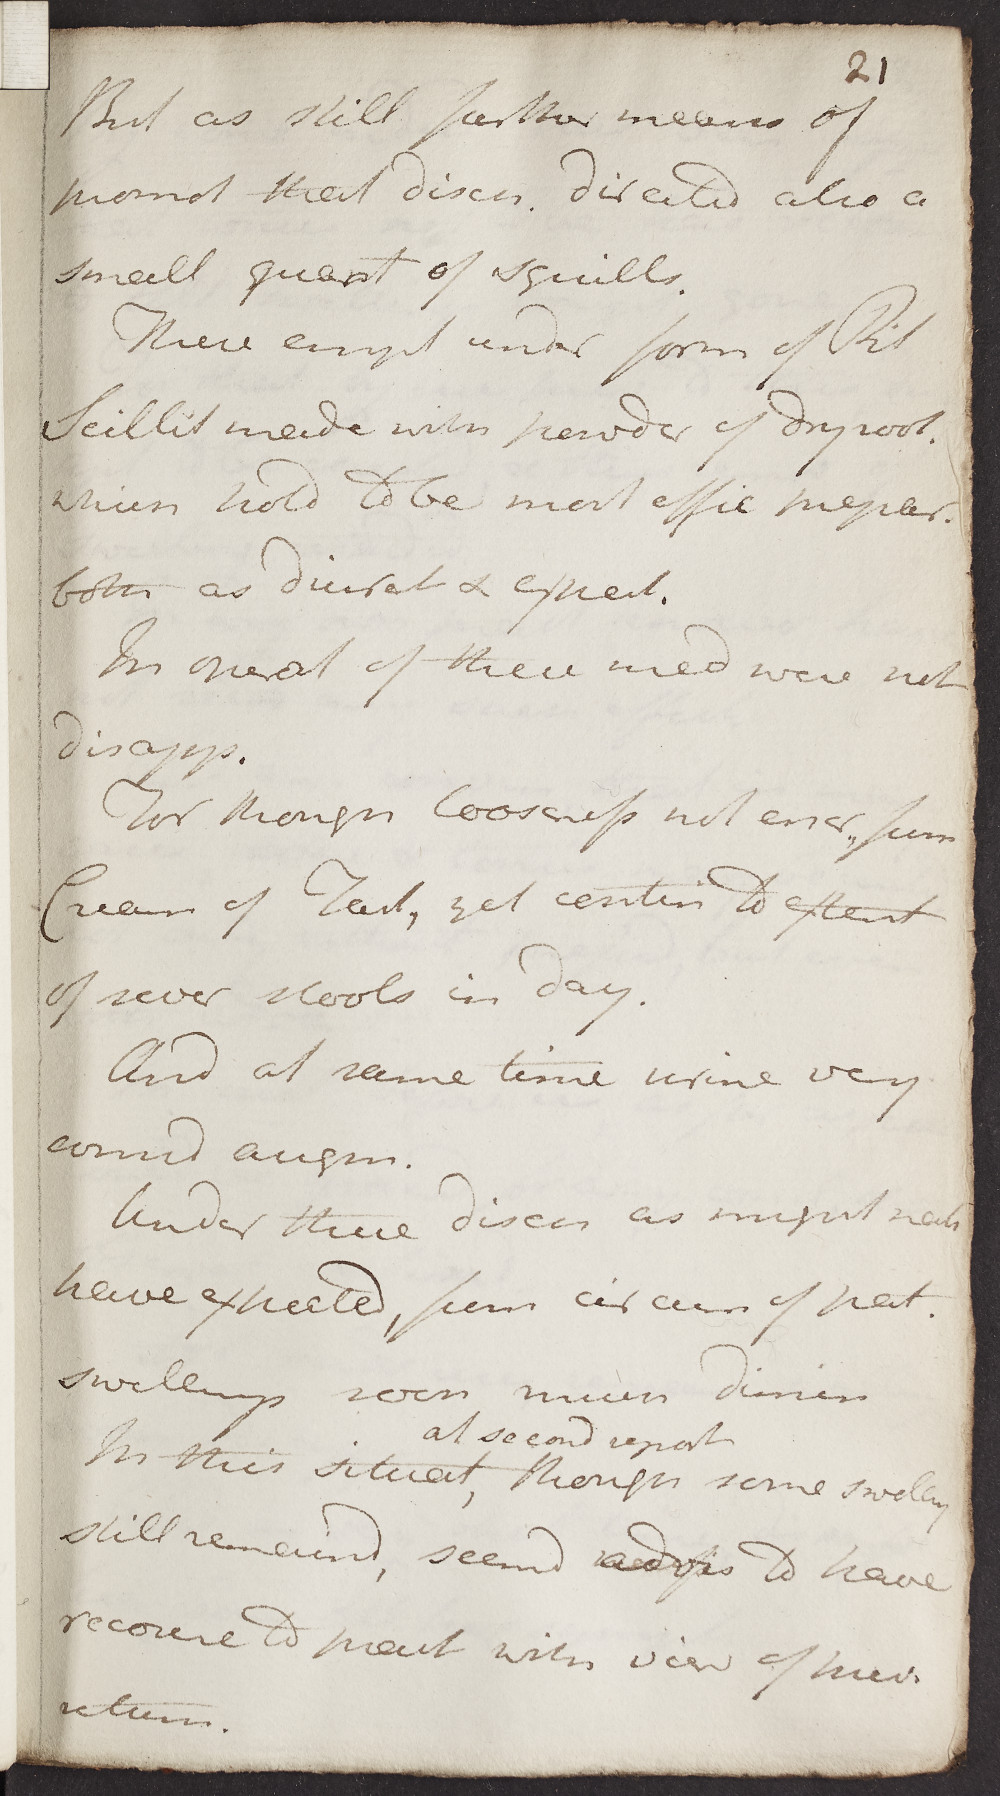 21
But as still further means of
promot that disch. directed also a
small quant of squills.
These empl under form of Pil
Scillit made with powder of dry root.
which hold to be most effic prepar.
both as diuret & expect.
In operat of these med were not
disapp.
For though looseness not encr., from
Cream of Tart, yet contin to extent
of sever stools in day.
And at same time urine very
consid augm.
Under these disch as might nat
have expected, from circum of pat.
swellings soon much dimin
at second report
In this situat, though some swelling
still remaind, seemd advis to have
recourse to pract with view of prev.
return.